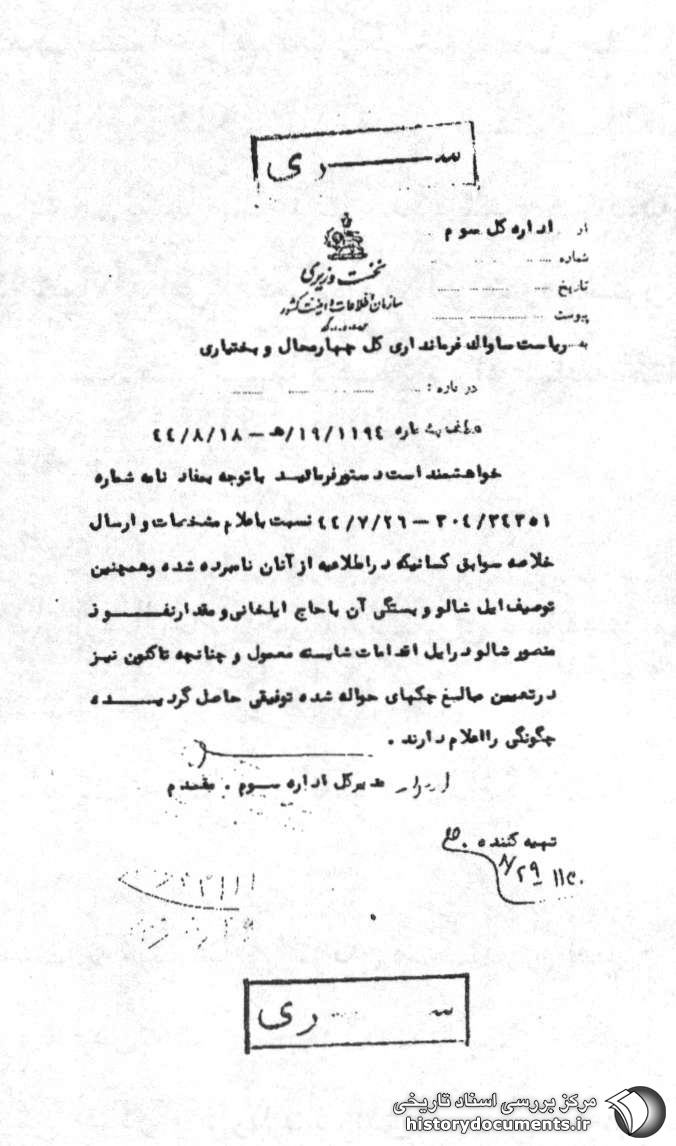 سری
از اداره کل سوم
شماره
تاریخ
پیوست
نخست وزیری
سازمان اطلاعات و امنیت کشور
به ریاست ساواک فرمانداری کل چهارمحال و بختیاری
در باره :
۱۹/۱۱۹۴/هـ – ۴۴/۸/۱۸
خواهشمند است دستور فرمائید با توجه بمفاد نامه شماره
۳۰۴/۳۴۳۵۱ – ۴۴/۷/۲۶ نسبت باعلام مشخصات و ارسال
خلاصه سوابق کسانیکه در اطلاعیه از آنان نامبرده شده و همچنین
توصیف ایل شالو و بستگی آن با حاج ایلخانی و مقدار نفوذ
منصور شالو در ایل اقدامات شایسته معمول و چنانچه تاکنون نیز
در تعیین مبالغ چکهای حواله شده توفیقی حاصل گردیده
چگونگی را اعلام دارند .
مدیرکل اداره سوم . مقدم
تهیه کننده
سری
مرکز بررسی اسناد تاریخی
historydocuments.ir